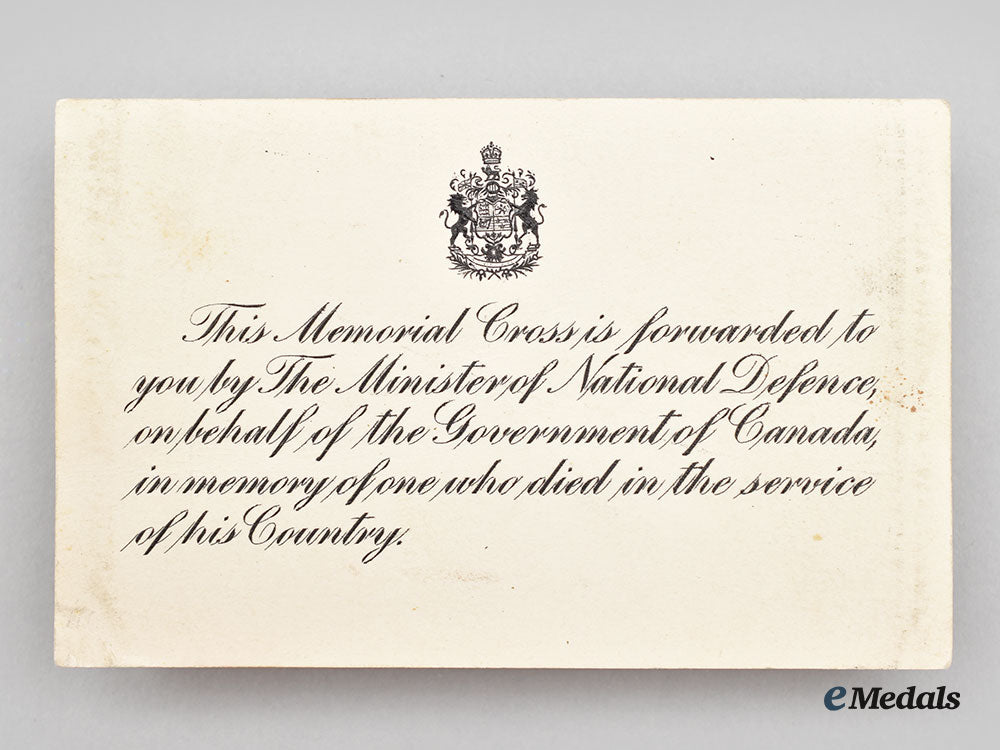 This Memorial Cross is forwarded to
you by The Minister of National Defence,
on behalf of the Government of Canada,
in memory of one who died in the service
of his Country.
eMedals